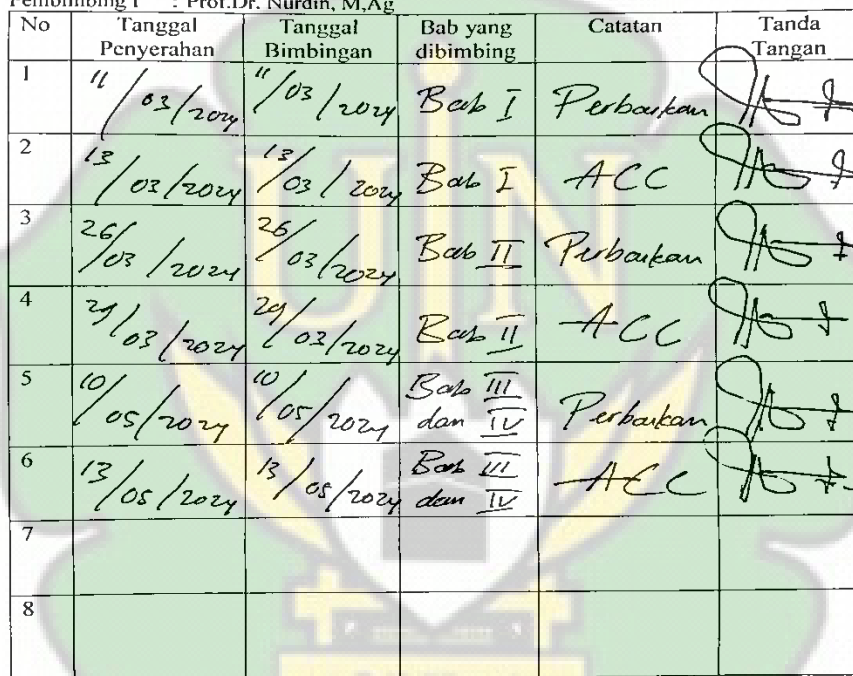 Pembimbing I : Prof.Dr. Nurdin, M,Ag
No Tanggal Penyerahan Tanggal Bimbingan Bab yang dibimbing Catatan Tanda Tangan
1 11/03/2024 11/03/2024 Bab I Perbaikan
2 13/03/2024 13/03/2024 Bab I ACC
3 26/03/2024 26/03/2024 Bab II Perbaikan
4 29/03/2024 29/03/2024 Bab II ACC
5 10/05/2024 10/05/2024 Bab III dan IV Perbaikan
6 13/05/2024 13/05/2024 Bab III dan IV ACC
7
8
UIN